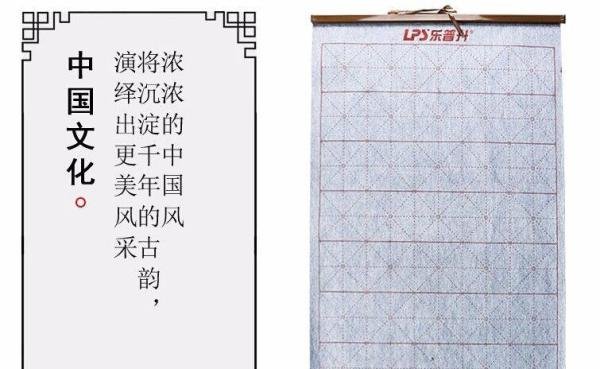 中国文化。
浓浓的中国风
将沉淀千年的古韵，
演绎出更美风采
LPS乐普升